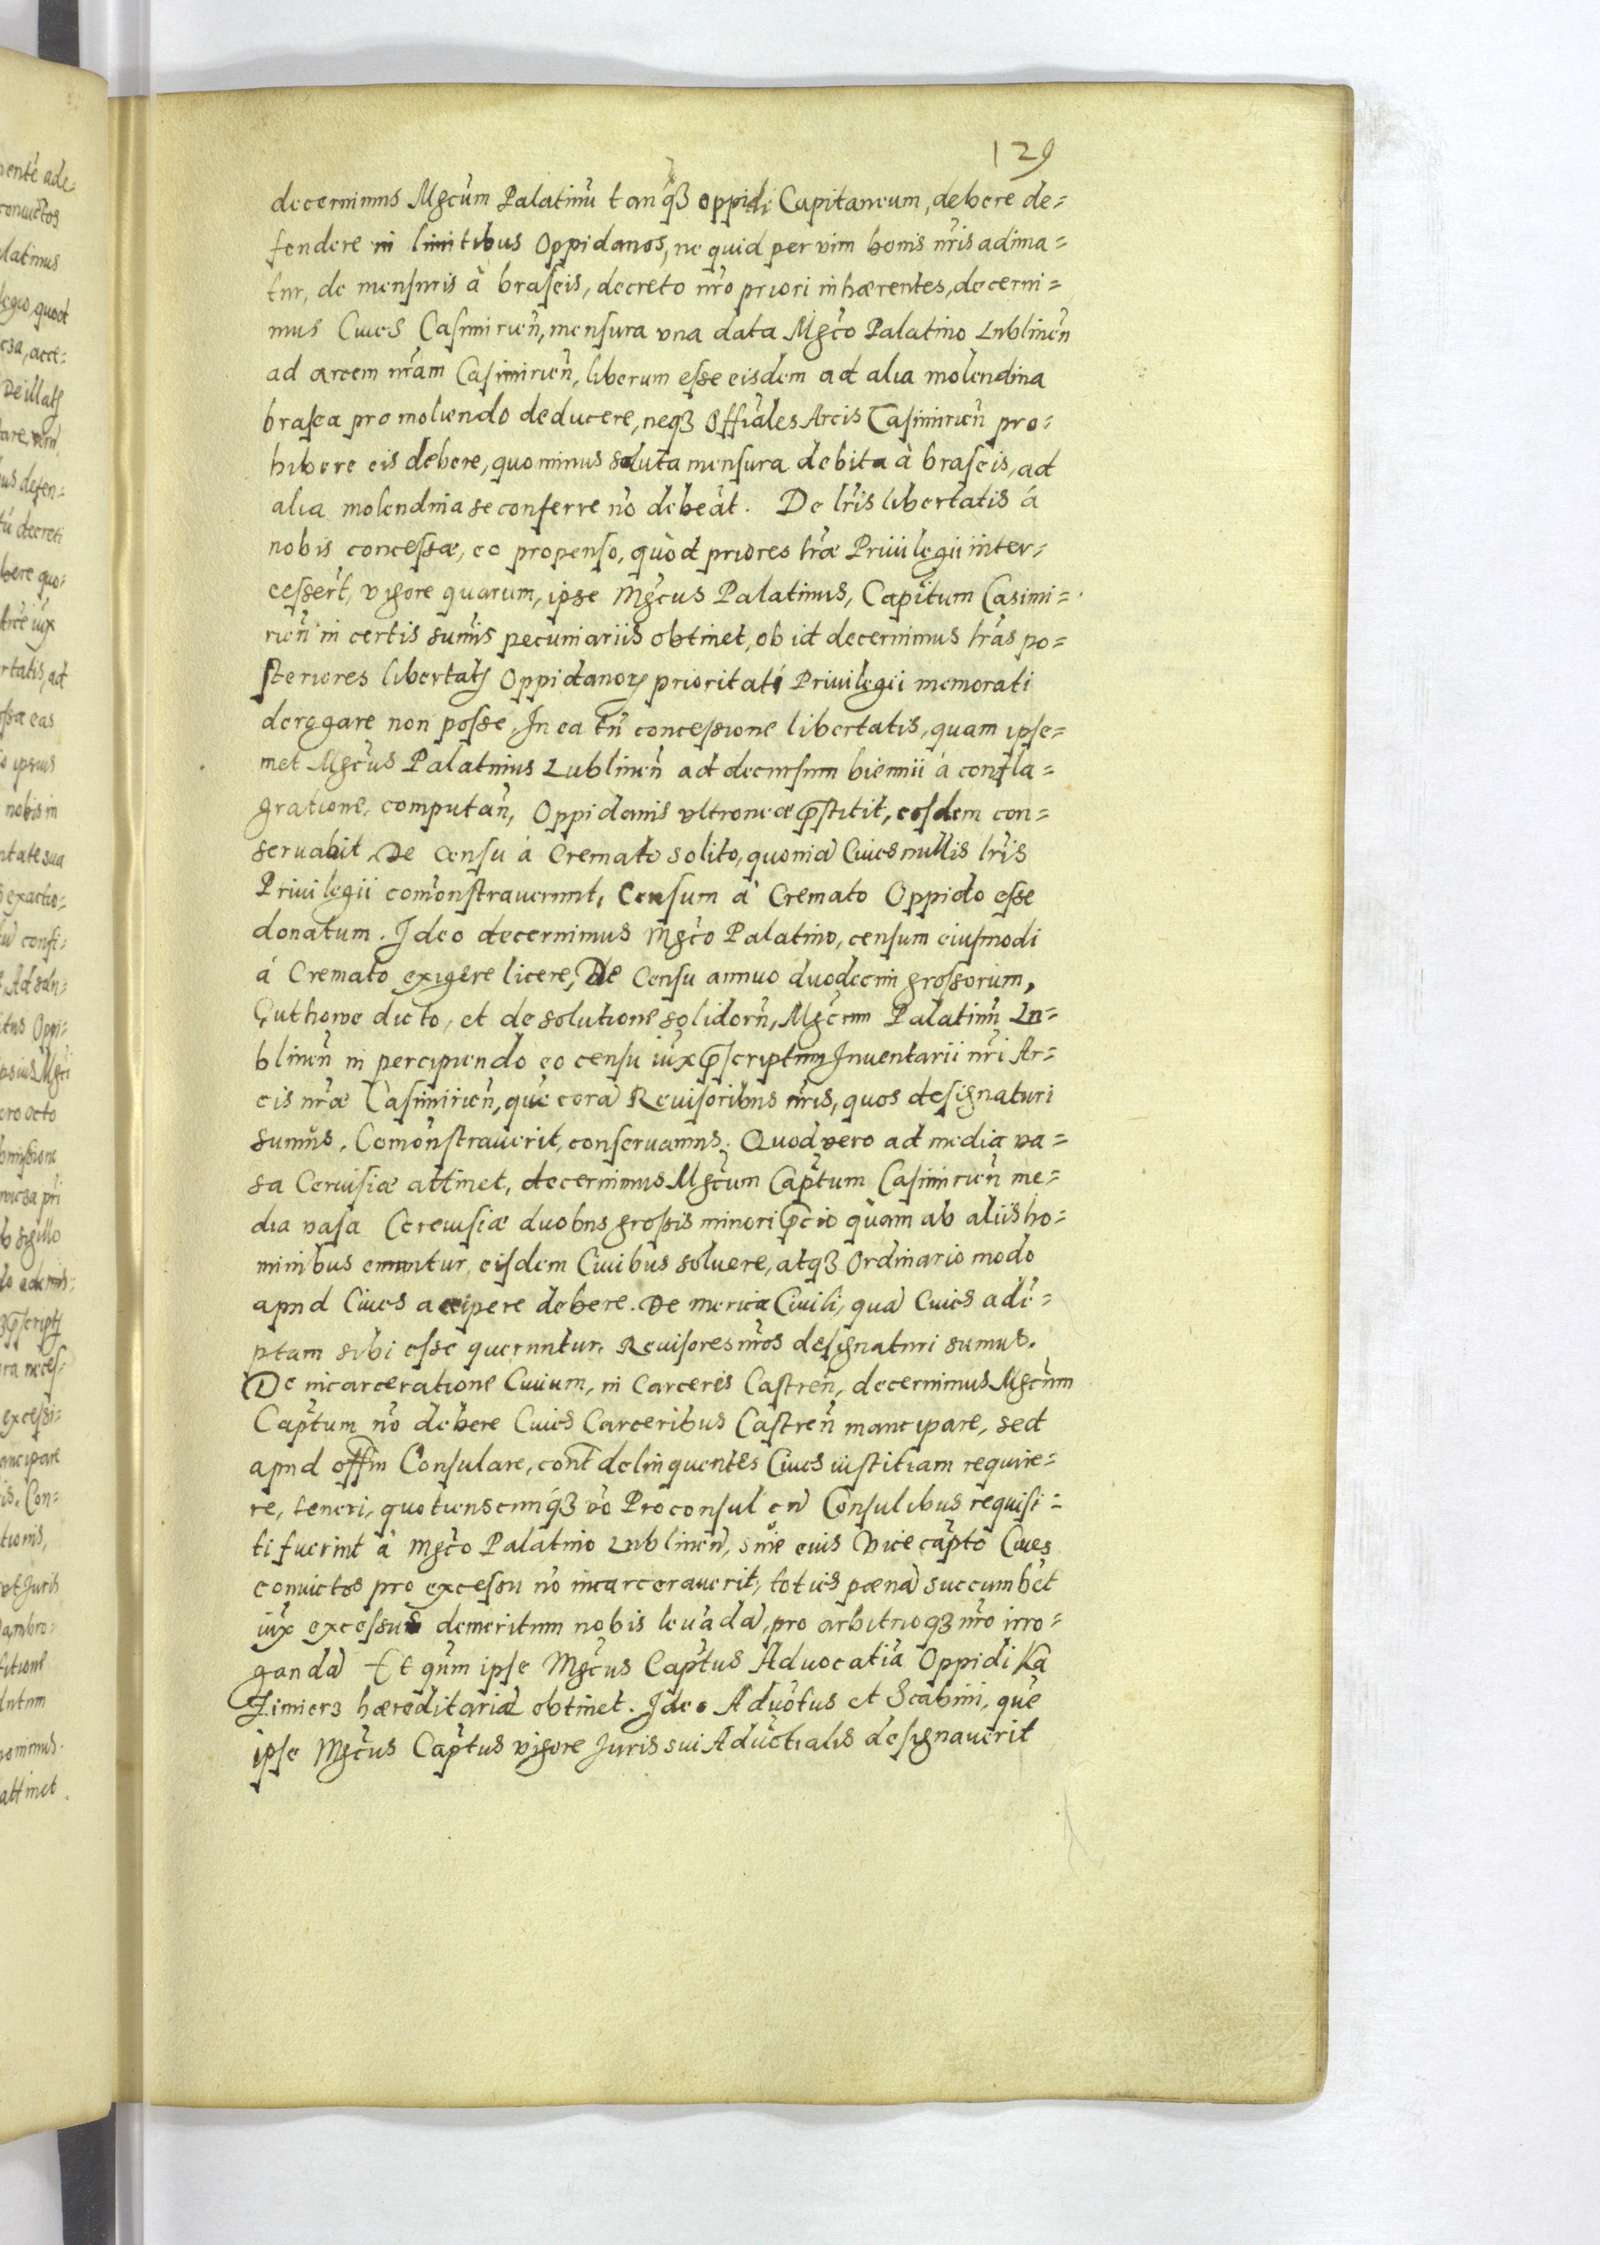 129
decernimus Mgcum Palatinu tanq̃ȝ oppidi Capitaneum, debere de=
fendere in limitibus Oppidanos, ne quid per vim bonis nr̃is adima=
tur, de mensuris à braseis, decreto nr̃o priori inhærentes, decerni=
mus Cives Casimirien̄, mensura una data Mgc̃o Palatino Lublinen̄
ad arcem nr̃am Casimirien̄, liberum esse eisdem ad alia molendina
brasea pro moliendo deducere, neqȝ Offiales Arcis Casimirien̄ pro=
hibere eis debere, quo minus soluta mensura debita à braseis, ad
alia molendina se conferre nõ debeãt. De lr̃is libertatis á
nobis concessæ, eo propenso, quòd priores lr̃æ Privilegii inter=
cessert̃, vigore quarum, ipse Mgc̃us Palatinus, Capitum Casimi=
rien̄ in certis sum̃is pecuniariis obtinet, ob id decernimus lr̃as po=
steriores libertatȷ Oppidanoꝝ prioritati Privilegii memorati
derogare non posse, In ea tñ concessione libertatis, quam ipse=
met Mgc̃us Palatinus Lublinen̄ ad decursum biennii á confla=
gratione, computan̄, Oppidanis ultroneæ p̃stitit, eosdem con=
servabit. De Censu á Cremato solito, quoniã Cives nullis lr̃is
Privilegii com̃onstraverunt, Censum á Cremato Oppido esse
donatum. Ideo decernimus Mgc̃o Palatino, censum eiusmodi
á Cremato exigere licere, De Censu annuo duodecim grossorum,
Guthowe dicto, et de solutione solidorũ, Mgc̃um Palatinũ Lu=
blinen̄ in percipiendo eo censu iux̃ p̃scriptum Inventarii nr̃i Ar=
cis nr̃æ Casimirien̄, quẽ corã Revisoribus nr̃is, quos designaturi
sum̃us, Com̃onstraverit, conservamus. Quod vero ad media va=
sa Cervisiæ attinet, decernimus Mgc̃um Cap̃tum Casimirien̄ me=
dia vasa Cerevisiæ duobus grossis minori p̃cio quam ab aliis ho=
minibus emuntur, eisdem Civibus solvere, atqȝ Ordinario modo
apud Cives accipere debere. De merica Civili, quã Cives adẽ=
ptam sibi esse queruntur, Revisores nr̃os designaturi sumus.
De incarceratione Civium, in Carceris Castren̄, decernimus Mgc̃um
Cap̃tum nõ debere Cives Carceribus Castren̄ mancipare, sed
apud offm Consulare, cont̃ delinquentes Cives iustitiam require=
re, teneri, quotiescunq̃ȝ vo Proconsul cũ Consulibus requisi=
ti fuerint á Mgc̃o Palatino Lublinen̄, sive eius Vicecap̃to Cives
convictos pro excessu nõ incarceraverit, toties pœnã succumbet
iux̃ excessus demeritum nobis levãdã, pro arbitrioqȝ nr̃o irro=
gandã Et qũm ipse Mgc̃us Cap̃tus Advocatiã Oppidi Ka
zimierz hæreditariã obtinet. Ideo Advotus et Scabini, que
ipse Mgc̃us Cap̃tus vigore Juris sui Advctialis designaverit